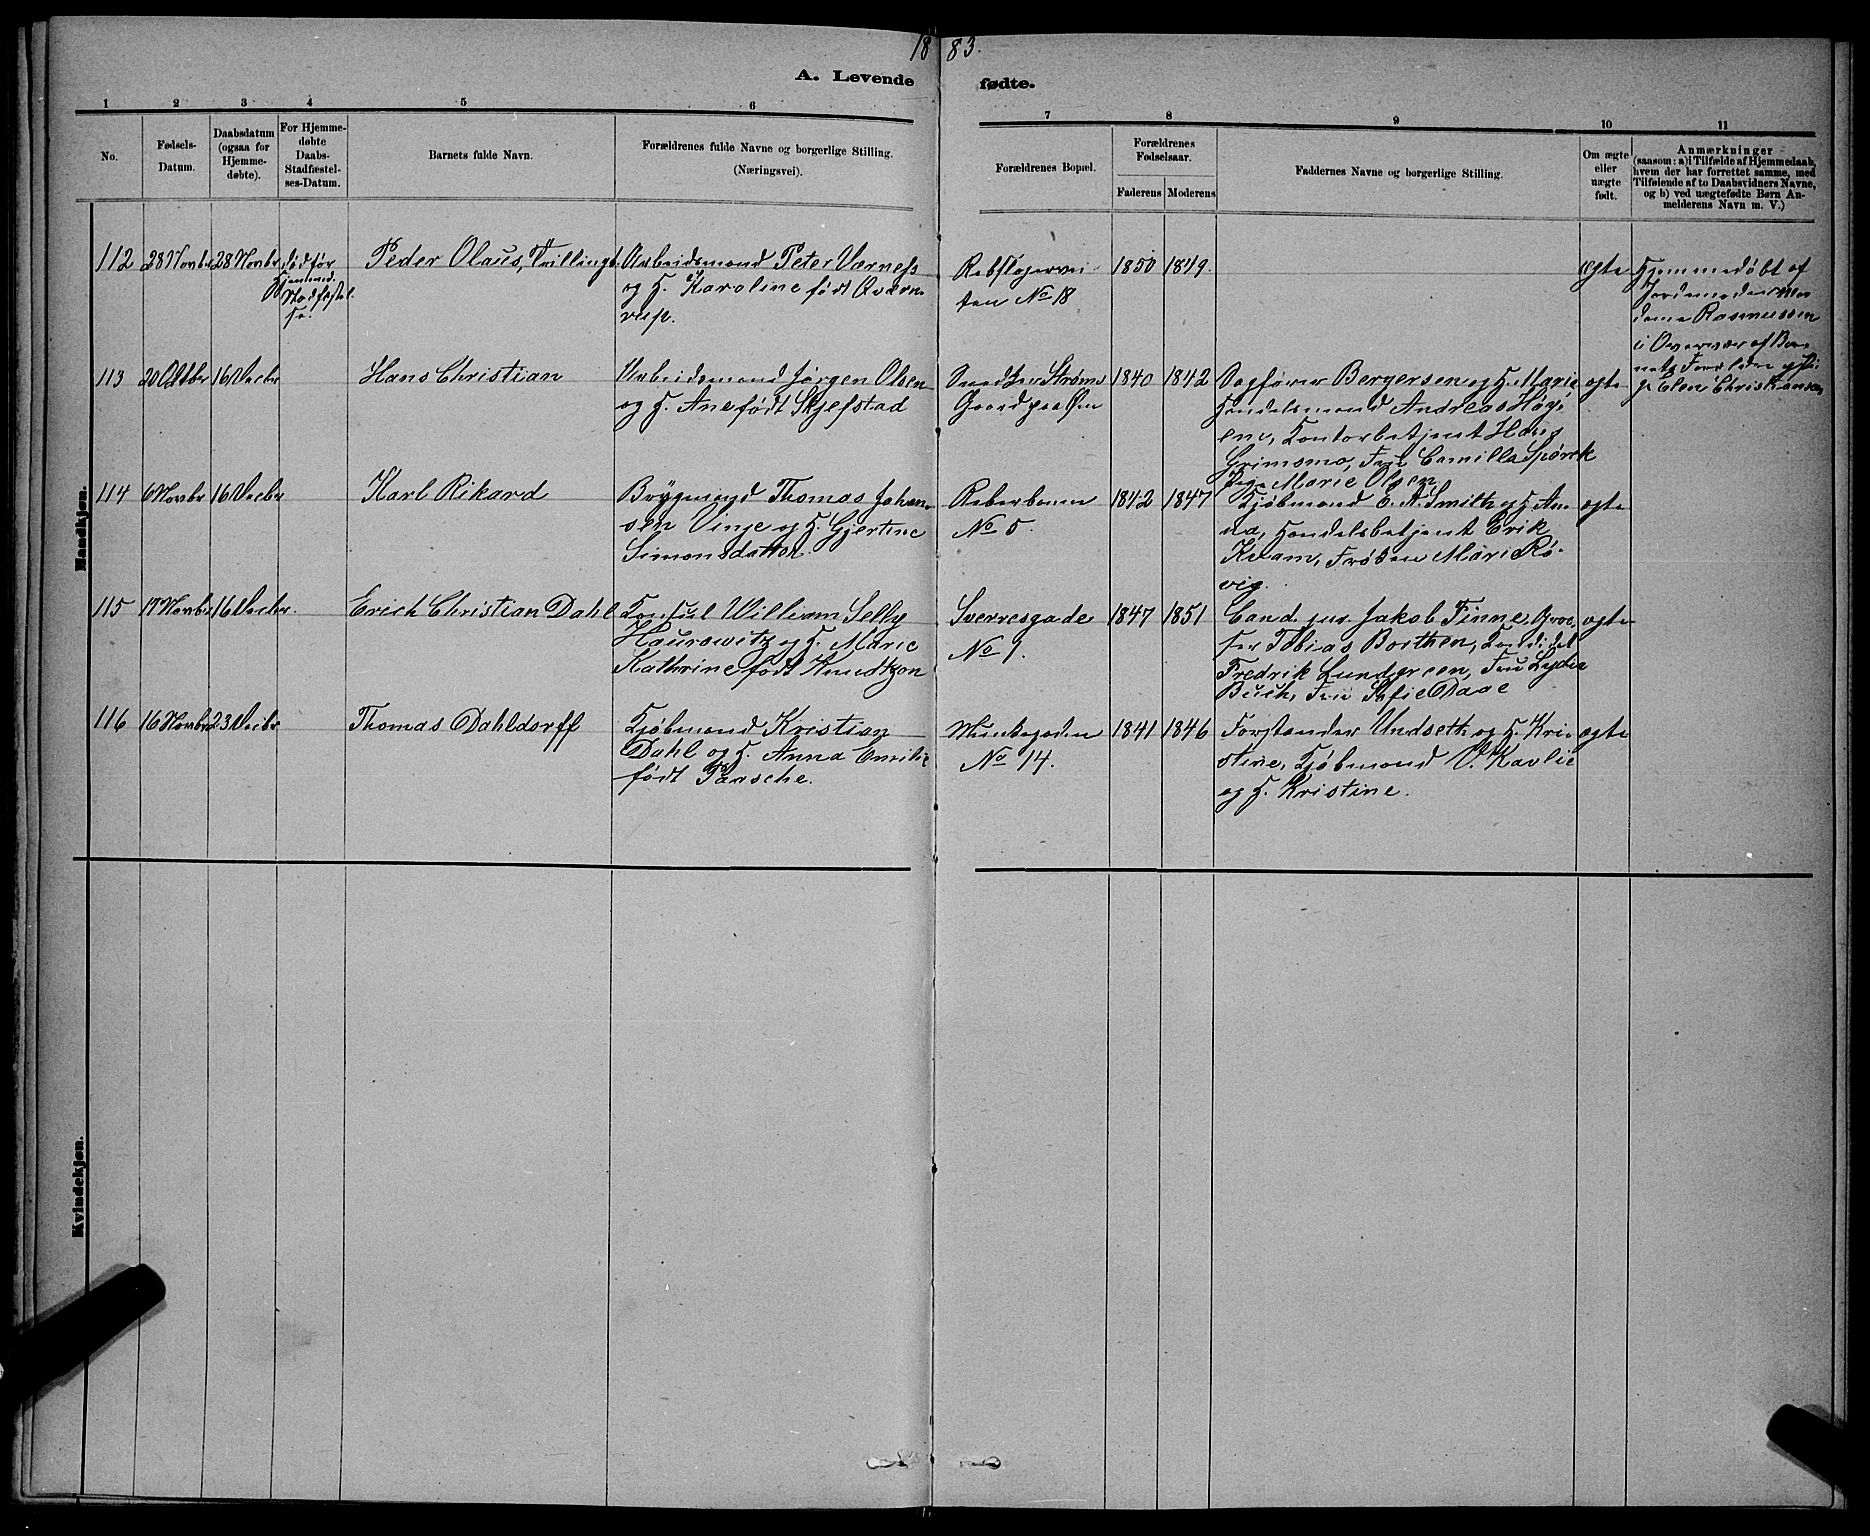 1883.
A. Levende fødte.
1 2 3 4 5 6 7 8 9 10 11
No.
Fødsels-
Datum.
Daabsdatum
(ogsaa for
Hjemme-
døbte).
For Hjemme-
døbte
Daabs-
Stadfæstel-
ses-Datum.
Barnets fulde Navn.
Forældrenes fulde Navne og borgerlige Stilling.
(Næringsvei).
Forældrenes Bopæl.
Forældrenes
Fødselsaar.
Faderens Moderens
Faddernes Navne og borgerlige Stilling.
Om ægte
eller
uægte
født.
Anmærkninger
(saasom: a) i Tilfælde af Hjemmedaab,
hvem der har forrettet samme, med
Tilføiende af to Daabsvidners Navne,
og b) ved uægtefødte Børn An-
melderens Navn m. V.)
Mandkjøn.
112
28 Novbr
28 Novbr
død før
Stadfæstel-
se.
Peder Olaus, Tvilling
Arbeidsmand Peter Værnes
og H. Karoline født
No 18
1850
1849.
ægte
Hjemmedøbt af
Jordemoder Ma-
dame Rasmussen
i Overvær af Bar-
nets Forældre og Pi-
ge Elen Christiansen
113
20 Oktbr
16 Decbr
Hans Christian
Arbeidsmand Jørgen Olsen
og H. Ane født Skjefstad
Snedker Strøms
Gaard paa Øen
1840
1842
Sagfører Bergersen og H. Marie
Handelsmand Andreas Høy-
en, Kontorbetjent Hans
Grimsmo, Frk Camilla Spørck
Pige Marie Olsen
ægte
114
6 Novbr
16 Decbr
Karl Rikard
Brygmand Thomas Johan-
sen Vinje og H. Gjertine
Simonsdatter.
Reberbanen
No 5.
1842
1847
Kjøbmand E. A. Smith og H. An-
na, Handelsbetjent Erik
Kvam, Frøken Marie Rø-
vig.
ægte
115
17 Novbr
16 Decbr.
Erich Christian Dahl
Konsul William Selby
Haurowitz og H. Marie
Kathrine født Knudtzon
Sverresgade
No 9.
1847
1851
Cand. jur. Jakob Finne, Gros-
ser Tobias Borthen, Kandidat
Fredrik Lundgreen, Fru Lydia
Buch, Fru Sofie Daae
ægte
116
16 Novbr
23 Decbr
Thomas Dahldorff
Kjøbmand Kristian
Dahl og H. Anna Emilie
født Paasche.
Munkegaden
No 14.
1841
1846
Forstander Undseth og H. Kri-
stine, Kjøbmand V. Kavlie
og H. Kristine.
ægte
Kvindekjøn.